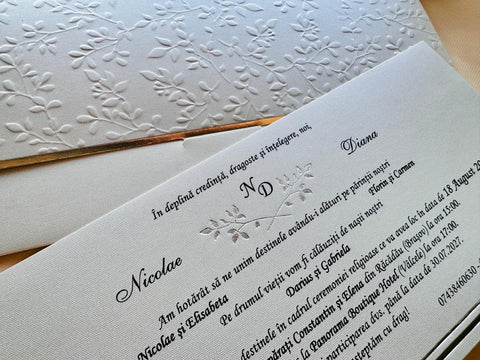 În deplină credință, dragoste și înțelegere, noi,
Nicolae
N
D
Diana
Am hotărât să ne unim destinele avându-i alături pe părinții noștri
Nicolae și Elisabeta
Florin și Carmen
Pe drumul vieții vom fi călăuziți de nașii noștri
Darius și Gabriela
destinele în cadrul ceremoniei religioase ce va avea loc în data de 18 August 20
părați Constantin și Elena din Răcădău (Brașov) la ora 15:00.
la Panorama Boutique Hotel (Vâlcele) la ora 17:00.
participarea dvs. până la data de 30.07.2027.
07438460630
teptăm cu drag!